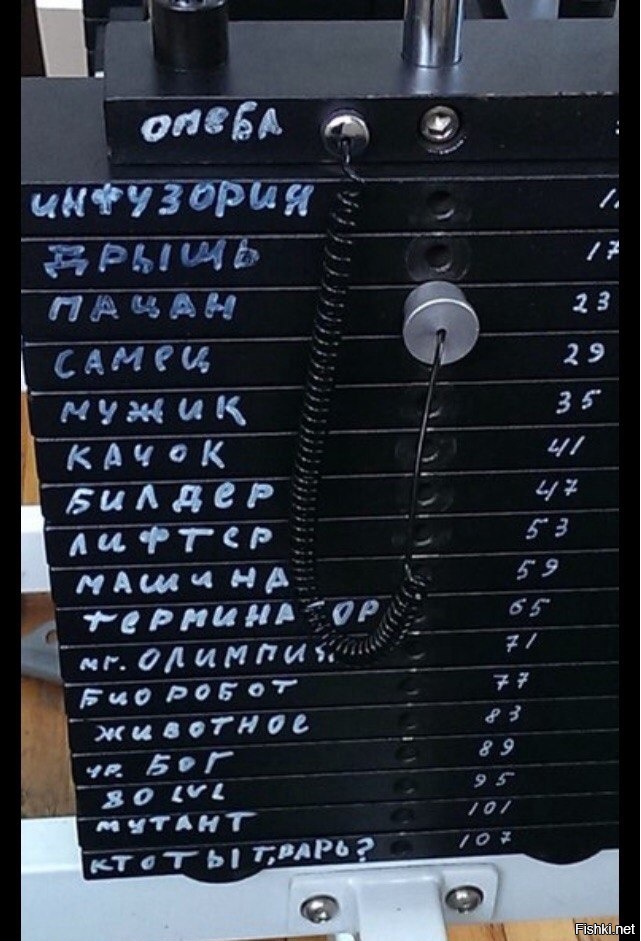 ОМЕБА
ИНФУЗОРИЯ
ДРЫЩЬ 17
ПАЦАН 23
САМЕЦ 29
МУЖИК 35
КАЧОК 41
БИЛДЕР 47
ЛИФТЕР 53
МАШИНА 59
ТЕРМИНАТОР 65
мг. ОЛИМПИЯ 71
БИОРОБОТ 77
ЖИВОТНОЕ 83
БОГ 89
80 LVL 95
МУТАНТ 101
КТО ТЫ Т,ВАРЬ? 107
Fishki.net